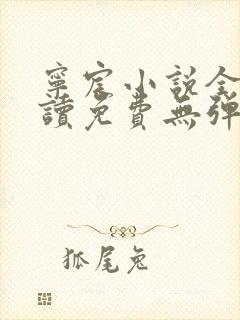 寧宸小說全
讀免費無彈
狐尾兔